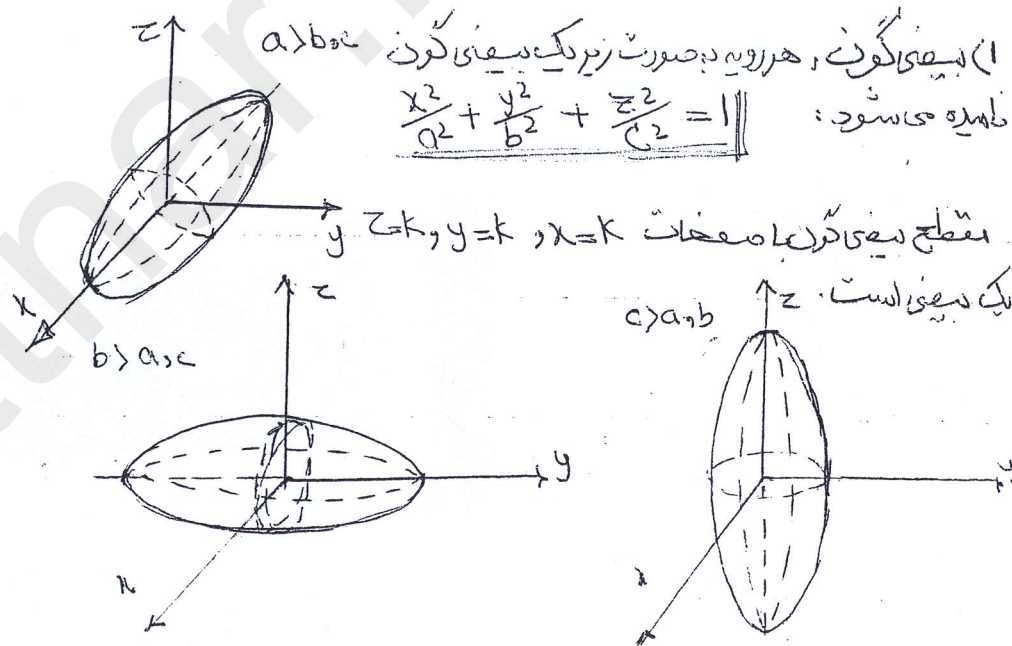 ۱) بیضی‌گون، هر رویه به صورت زیر یک بیضی گون
نامیده می‌شود:
x²/a² + y²/b² + z²/c² = 1
مقطع بیضی‌گون با صفحات x=k, y=k, z=k
یک بیضی است.
a>b,c
z
y
x
b>a,c
z
y
x
c>a,b
z
y
x